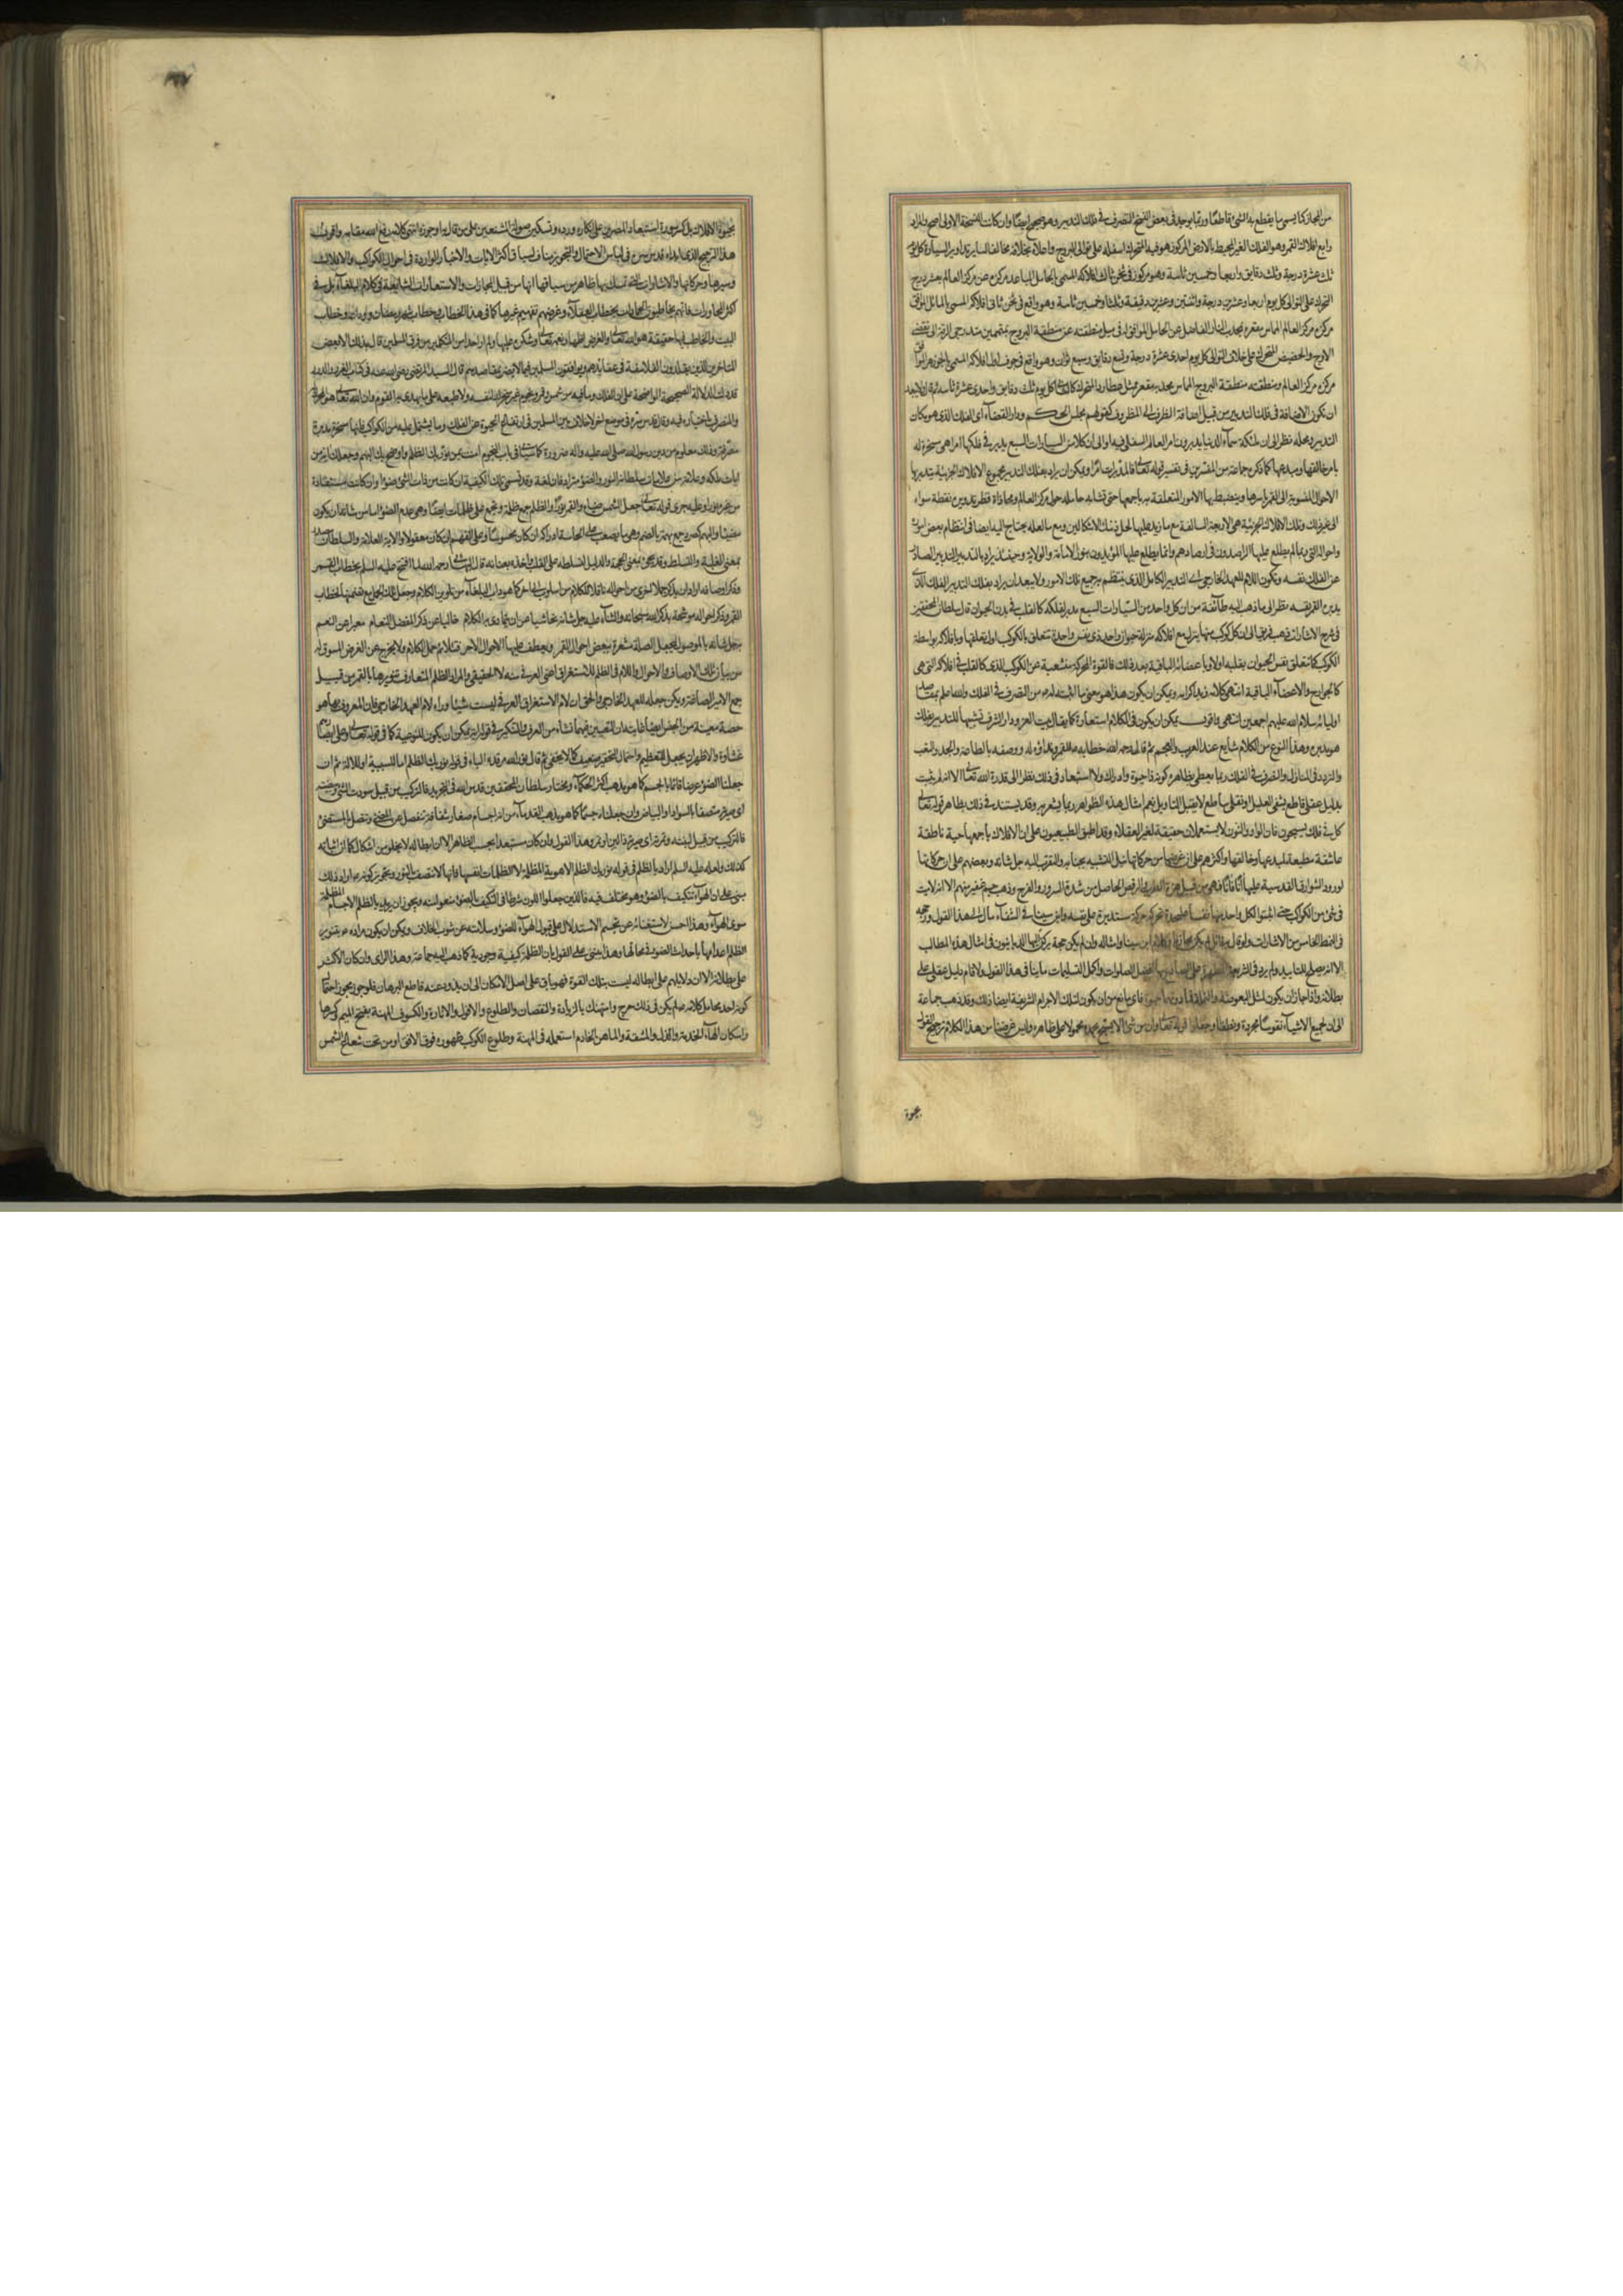 من المجاز كما يسمى ما يقطع به الشئ قاطعا وربما يوجد في بعض النسخ المتصرف في فلك التدبير وهو صحيح ايضا وان كانت النسخة الاولى اصح والمراد
رابع افلاك القمر وهو الفلك الغير المحيط بالارض المركوز هو فيه المتحرك اسفله على توالى البروج واعلاه بخلافه مخالفا لسائر تداوير السيارة كل يوم
ثلث عشرة درجة وثلث دقايق واربعا وخمسين ثانية وهو مركوز في ثخن ثالث افلاكه المسمى بالحامل المباعد مركزه عن مركز العالم بعشر درج
المتحرك على التوالى كل يوم اربعا وعشرين درجة واثنتين وعشرين دقيقة وثلثا وخمسين ثانية وهو واقع في ثخن ثانى افلاكه المسمى بالمائل الموافق
مركزه مركز العالم المماس مقعره محدب النار الفاضل عن الحامل الموافق له في ميل منطقته عن منطقة البروج بمتممين متدرجى الرقة الى نقطتى
الاوج والحضيض المتحرك على خلاف التوالى كل يوم احدى عشرة درجة وتسع دقايق وسبع ثوان وهو واقع في جوف اول افلاكه المسمى بالجوزهر الموافق
مركزه مركز العالم ومنطقته منطقة البروج المماس محدبه مقعر ممثل عطارد المتحرك كالثانى كل يوم ثلث دقايق واحدى عشرة ثانية
ان يكون الاضافة في فلك التدبير من قبيل اضافة الظرف الى المظروف كقولهم مجلس الحكم ودار القضاء اى الفلك الذى هو مكان
التدبير ومحله نظرا الى ان ملئكة سماء الدنيا يدبرون امر العالم السفلى فيه او الى ان كلا من السيارات السبع يدبر في فلكها امرا هى مسخرة له
بامر خالقها ومبدعها كما ذكره جماعة من المفسرين في تفسير قوله تعالى فالمدبرات امرا ويمكن ان يراد بفلك التدبير مجموع الافلاك الجزئية التى يتدبر بها
الاحوال المنسوبة الى القمر باسرها وينضبط بها الامور المتعلقة به باجمعها حتى تشابه حامله حول مركز العالم ومحاذاة قطر تدويره نقطة سواه
الى غير ذلك وتلك الافلاك الجزئية هى الاربعة السالفة مع ما زيد عليها لحل ذينك الاشكالين ومع ما لعله يحتاج اليه ايضا في انتظام بعض اموره
واحواله التى ربما لم يطلع عليها الراصدون في ارصادهم وانما يطلع عليها المؤيدون بنور الامامة والولاية وحينئذ يراد بالتدبير التدبير الصادر
عن الفلك نفسه ويكون اللام للعهد الخارجى اى التدبير الكامل الذى ينتظم به جميع تلك الامور ولا يبعد ان يراد بفلك التدبير الفلك الذى
يدبره القمر نفسه نظرا الى ما ذهب اليه طائفة من ان كل واحد من السيارات السبع مدبر لفلكه كالقلب في بدن الحيوان قال سلطان المحققين
في شرح الاشارات ذهب فريق الى ان كل كوكب منها ينزل مع افلاكه منزلة حيوان واحد ذى نفس واحدة تتعلق بالكوكب اول تعلقها وبافلاكه بواسطة
الكوكب كما تتعلق نفس الحيوان بقلبه اولا وباعضائه الباقية بعد ذلك فالقوة المحركة منبعثة عن الكوكب الذى هو كالقلب في افلاكه التى هى
كالجوارح والاعضاء الباقية انتهى كلامه زيد اكرامه ويمكن ان يكون هذا هو معنى ما اثبته له عليه السلام من التصرف في الفلك والله اعلم بمقاصد
اوليائه سلام الله عليهم اجمعين انتهى واقول يمكن ان يكون في الكلام استعارة كما يقال بيت العز ودار الشرف تشبيها للتدبير بفلك
هو يديره وهذا النوع من الكلام شايع عند العرب والعجم ثم قال رحمه الله خطابه عليه السلام للقمر ونداؤه له ووصفه بالطاعة والجد والتعب
والتردد في المنازل والتصرف في الفلك ربما يعطى بظاهره كونه ذا حيوة وادراك ولا استبعاد في ذلك نظرا الى قدرة الله تعالى الا انه لم يثبت
بدليل عقلى قاطع يشفى العليل او نقلى ساطع لا يقبل التاويل نعم امثال هذه الظواهر ربما يشعر به وقد يستند في ذلك بظاهر قوله تعالى
كل في فلك يسبحون فان الواو والنون لا يستعملان حقيقة لغير العقلاء وقد اطبق الطبيعيون على ان الافلاك باجمعها حية ناطقة
عاشقة مطيعة لمبدعها وخالقها واكثرهم على ان غرضها من حركاتها نيل التشبه بجنابه والتقرب اليه جل شانه وبعضهم على ان حركاتها
لورود الشوارق القدسية عليها آنا فآنا فهى من قبيل هزة الطرب والرقص الحاصل من شدة السرور والفرح وذهب جم غفير منهم الا انه لا ميت
في شئ من الكواكب حتى اثبتوا لكل واحد منها نفسا على حدة تحركه حركة مستديرة على نفسه وابن سينا في الشفاء مال الى هذا القول ورجحه
في النمط الخامس من الاشارات ولو قال به قائل لم يكن مجازفا وكلام ابن سينا وامثاله وان لم يكن حجة يركن اليها الديانيون في امثال هذه المطالب
الا انه يصلح للتاييد ولم يرد في الشريعة المطهرة على الصادع بها افضل الصلوات واكمل التسليمات ما ينافى هذا القول ولا قام دليل عقلى على
بطلانه واذا جاز ان يكون لمثل البعوضة والنملة فما دونها حيوة فاى مانع من ان يكون لتلك الاجرام الشريفة ايضا ذلك وقد ذهب جماعة
الى ان لجميع الاشياء نفوسا مجردة ونطقا وجعلوا قوله تعالى وان من شئ الا يسبح بحمده محمولا على ظاهره وليس غرضنا من هذا الكلام ترجيح القول
بحيوة
بحيوة الافلاك بل كسر سورة استبعاد المصرين على انكاره ورده وتسكين صولة المشنعين على من قال به او جوزه انتهى كلامه رفع الله مقامه واقول
هذا الترجيح الذى ابداه قدس سره في لباس الاحتمال والتجويز ينافى سياق اكثر الايات والاخبار الواردة في احوال الكواكب والافلاك
وسيرها وحركاتها والاشارات التى تمسك بها ظاهر من سياقها انها من قبيل المجازات والاستعارات الشايعة في كلام البلغاء بل في
اكثر المحاورات فانهم يخاطبون الجمادات بخطاب العقلاء وغرضهم تفهيم غيرها كما في هذا الخطاب وخطاب شهر رمضان ووداعه وخطاب
البيت والمخاطب فيها حقيقة هو الله تعالى والغرض اظهار نعمه تعالى وشكره عليها ولم ار احدا من المتكلمين من فرق المسلمين قال بذلك الا بعض
المتاخرين الذين يقلدون الفلاسفة في عقايدهم ويوافقون المسلمين فيما لا يضر بمقاصدهم قال السيد المرتضى رضى الله عنه في كتاب الغرر والدرر
قد دلت الدلالة الصحيحة الواضحة على ان الفلك وما فيه من شمس وقمر ونجوم غير متحرك لنفسه ولا طبعه على ما يهذى به القوم وان الله تعالى هو المحرك له
والمتصرف باختياره فيه وقال قدس سره في موضع اخر لا خلاف بين المسلمين في ارتفاع الحيوة عن الفلك وما يشتمل عليه من الكواكب فانها مسخرة مدبرة
مصرفة وذلك معلوم من دين رسول الله صلى الله عليه واله ضرورة كما سياتى في باب النجوم امنت بمن نور بك الظلم واوضح بك البهم وجعلك اية من
ايات ملكه وعلامة من علامات سلطانه النور والضوء مترادفان لغة وقد تسمى تلك الكيفية ان كانت من ذات الشئ ضوءا وان كانت مستفادة
من غيره نورا وعليه جرى قوله تعالى جعل الشمس ضياء والقمر نورا والظلم جمع ظلمة ويجمع على ظلمات ايضا وهى عدم الضوء عما من شانه ان يكون
مضيئا والبهم كصرد جمع بهمة بالضم وهى ما يصعب على الحاسة ادراكه ان كان محسوسا وعلى الفهم ان كان معقولا والاية العلامة والسلطان مصدر
بمعنى الغلبة والتسلط وقد يجئ بمعنى الحجة والدليل لتسلطه على القلب واخذه بعنانه قال البهائى رحمه الله لما افتتح عليه السلم بخطاب القمر
وذكر اوصافه اراد ان يذكر جملا اخرى من احواله ناقلا للكلام من اسلوب الى اخر كما هو داب البلغاء من تلوين الكلام وجعل تلك الجمل مع تضمنها لخطاب
القمر وذكر احواله موشحة بذكر الله سبحانه والثناء عليه جل شانه تحاشيا عن ان يتمادى به الكلام خاليا عن ذكر المفضل المنعام معبرا عن النعم
جل شانه بالموصول ليجعل الصلة مشعرة ببعض احوال القمر ويعطف عليها الاحوال الاخر فتتلائم جمل الكلام ولا يخرج عن الغرض المسوق له
من بيان تلك الاوصاف والاحوال واللام في الظلم للاستغراق اعنى العرفى منه لا الحقيقى والمراد الظلم المتعارف تنويرها بالقمر من قبيل
جمع الامير الصاغة ويمكن جعله للعهد الخارجى والحق ان لام الاستغراق العرفى ليست شيئا وراء لام العهد الخارجى فان المعروف بها هو
حصة معينة من الجنس ايضا غاية ان التعيين فيها نشاء من العرف والتنكير في قوله اية يمكن ان يكون للنوعية كما في قوله تعالى وعلى ابصارهم
غشاوة والاظهر ان يجعل للتعظيم واحتمال التحقير ضعيف كما لا يخفى ثم قال نور الله مرقده الباء في قوله نور بك الظلم اما للسببية او للالة ثم ان
جعلنا الضوء عرضا قائما بالجسم كما هو مذهب اكثر الحكماء ومختار سلطان المحققين قدس الله في التجريد فالتركيب من قبيل سودت الشئ وبيضته
اى صيرته متصفا بالسواد او البياض وان جعلناه جسما كما هو مذهب القدماء من انه اجسام صغار شفافة تنفصل عن المضئ وتتصل بالمستضئ
فالتركيب من قبيل لبنته وتمرته اى صيرته ذا لبن او تمر وهذا القول وان كان مستبعدا بحسب الظاهر الا ان ابطاله لا يخلو من اشكال كما ان اثباته
كذلك ولعله عليه السلم اراد بالظلم في قوله نور بك الظلم الاهوية المظلمة لا الظلمات انفسها فانها لا تتصف بالنور وتجويز كونه عليه السلام اراد ذلك
مبنى على ان الهواء يتكيف بالضوء وهو مختلف فيه فالذين جعلوا اللون شرطا في التكيف بالضوء منعوا منه ويجوز ان يريد بالظلم الاجسام المظلمة
سوى الهواء وهذا احسن لاستغنائه عن تجشم الاستدلال على قبول الهواء للضوء وسلامته عن شوب الخلاف ويمكن ان يكون مراده عليه السلام بتنوير
الظلم اعدامها باحداث الضوء في محالها وهذا يبتنى على القول بان الظلمة كيفية وجودية كما ذهب اليه جماعة وهذا الراى وان كان الاكثر
على بطلانه الا ان دلايلهم على ابطاله ليست بتلك القوة فهو باق على اصل الامكان الى ان يذود عنه قاطع البرهان فلو جوز مجوز احتمال
كونه احد محامل كلامه عليه السلام لم يكن في ذلك حرج وامتهنك بالزيادة والنقصان والطلوع والافول والانارة والكسوف المهنة بفتح الميم وكسرها
واسكان الهاء الخدمة والذل والمشقة والماهن الخادم استعمله في المهنة وطلوع الكوكب ظهوره فوق الافق او من تحت شعاع الشمس